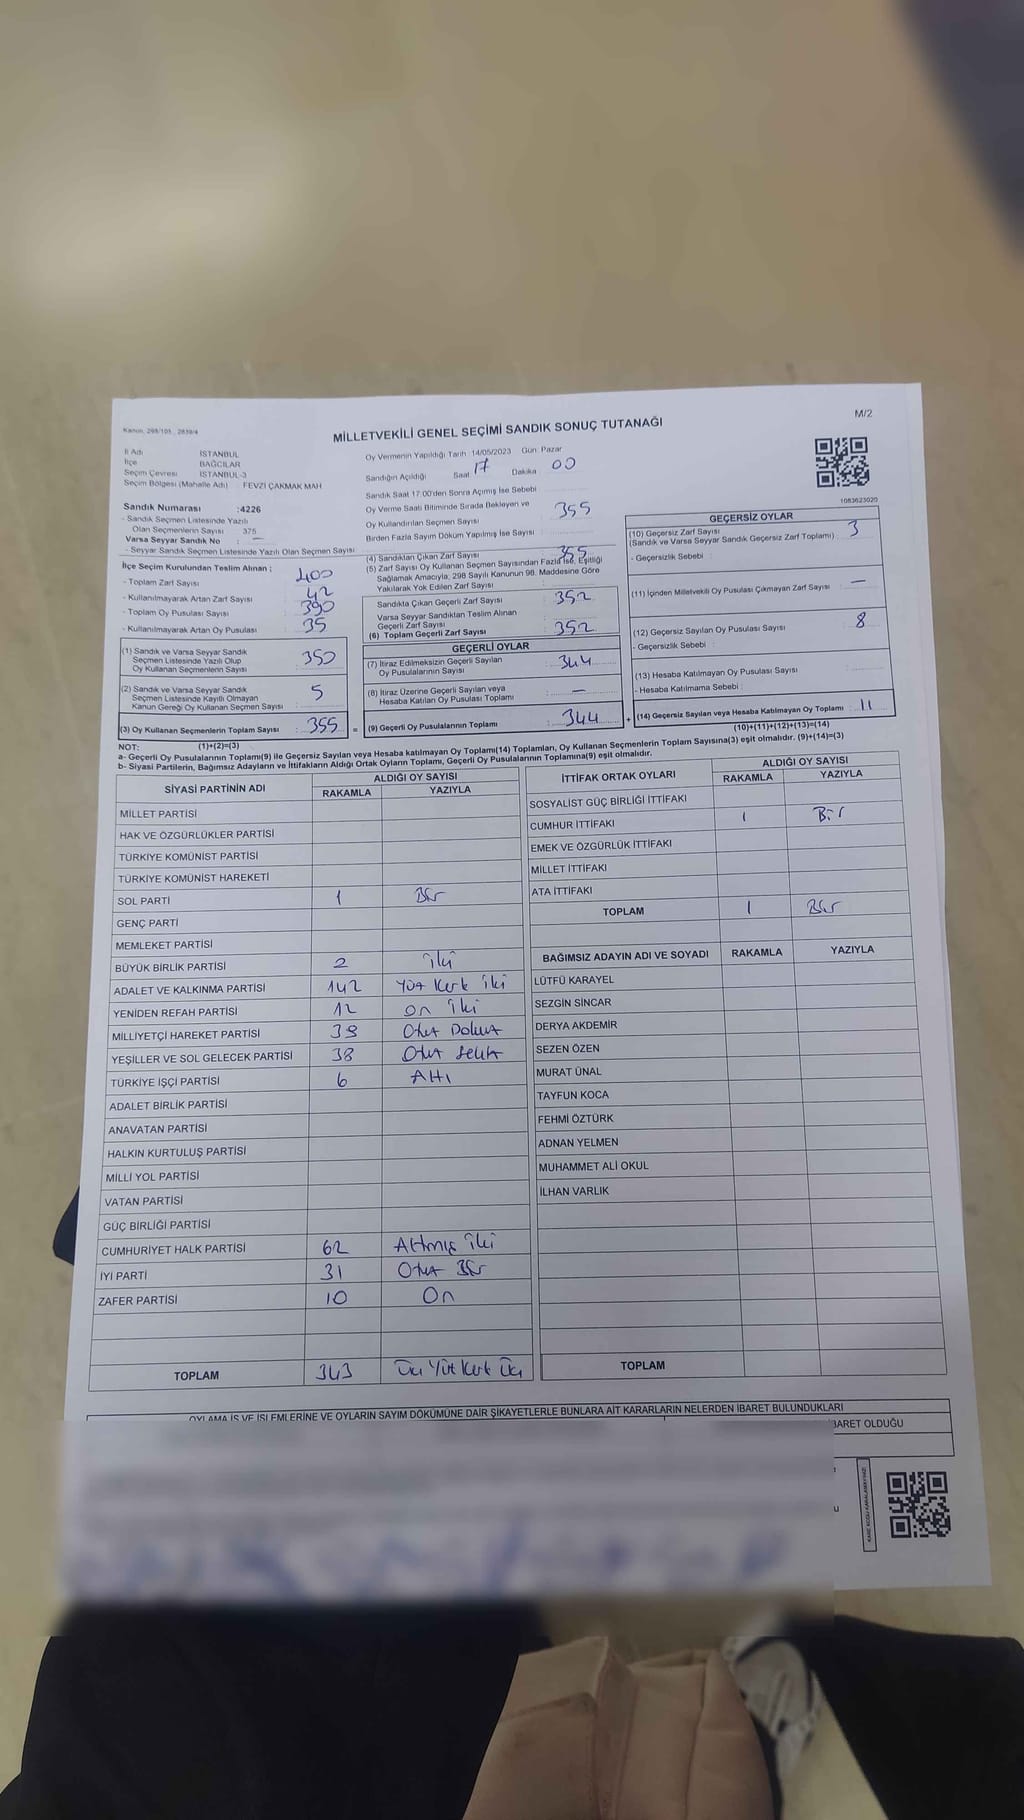 Kanun, 298/105 , 2839/4
M/2
MİLLETVEKİLİ GENEL SEÇİMİ SANDIK SONUÇ TUTANAĞI
İl Adı : İSTANBUL
İlçe : BAĞCILAR
Seçim Çevresi : İSTANBUL-3
Seçim Bölgesi (Mahalle Adı) : FEVZİ ÇAKMAK MAH
Sandık Numarası :4226
- Sandık Seçmen Listesinde Yazılı
Olan Seçmenlerin Sayısı : 375
Varsa Seyyar Sandık No : —
- Seyyar Sandık Seçmen Listesinde Yazılı Olan Seçmen Sayısı
İlçe Seçim Kurulundan Teslim Alınan ;
- Toplam Zarf Sayısı : 400
- Kullanılmayarak Artan Zarf Sayısı : 42
- Toplam Oy Pusulası Sayısı : 390
- Kullanılmayarak Artan Oy Pusulası : 35
(1) Sandık ve Varsa Seyyar Sandık
Seçmen Listesinde Yazılı Olup
Oy Kullanan Seçmenlerin Sayısı : 350
(2) Sandık ve Varsa Seyyar Sandık
Seçmen Listesinde Kayıtlı Olmayan
Kanun Gereği Oy Kullanan Seçmen Sayısı : 5
(3) Oy Kullanan Seçmenlerin Toplam Sayısı : 355 =
Oy Vermenin Yapıldığı Tarih :14/05/2023 Gün: Pazar
Sandığın Açıldığı Saat : 17 Dakika : 00
Sandık Saat 17:00'den Sonra Açımış İse Sebebi :
Oy Verme Saati Bitiminde Sırada Bekleyen ve
Oy Kullandırılan Seçmen Sayısı : 355
Birden Fazla Sayım Döküm Yapılmış İse Sayısı :
(4) Sandıktan Çıkan Zarf Sayısı : 355
(5) Zarf Sayısı Oy Kullanan Seçmen Sayısından Fazla İse, Eşitliği
Sağlamak Amacıyla, 298 Sayılı Kanunun 98. Maddesine Göre
Yakılarak Yok Edilen Zarf Sayısı :
Sandıkta Çıkan Geçerli Zarf Sayısı : 352
Varsa Seyyar Sandıktan Teslim Alınan
Geçerli Zarf Sayısı :
(6) Toplam Geçerli Zarf Sayısı : 352
GEÇERLİ OYLAR
(7) İtiraz Edilmeksizin Geçerli Sayılan
Oy Pusulalarının Sayısı : 344
(8) İtiraz Üzerine Geçerli Sayılan veya
Hesaba Katılan Oy Pusulası Toplamı : —
(9) Geçerli Oy Pusulalarının Toplamı : 344 +
1083623020
GEÇERSİZ OYLAR
(10) Geçersiz Zarf Sayısı
(Sandık ve Varsa Seyyar Sandık Geçersiz Zarf Toplamı) : 3
- Geçersizlik Sebebi :
(11) İçinden Milletvekili Oy Pusulası Çıkmayan Zarf Sayısı : —
(12) Geçersiz Sayılan Oy Pusulası Sayısı : 8
- Geçersizlik Sebebi :
(13) Hesaba Katılmayan Oy Pusulası Sayısı :
- Hesaba Katılmama Sebebi :
(14) Geçersiz Sayılan veya Hesaba Katılmayan Oy Toplamı : 11
(10)+(11)+(12)+(13)=(14)
NOT: (1)+(2)=(3)
a- Geçerli Oy Pusulalarının Toplamı(9) ile Geçersiz Sayılan veya Hesaba katılmayan Oy Toplamı(14) Toplamları, Oy Kullanan Seçmenlerin Toplam Sayısına(3) eşit olmalıdır. (9)+(14)=(3)
b- Siyasi Partilerin, Bağımsız Adayların ve İttifakların Aldığı Ortak Oyların Toplamı, Geçerli Oy Pusulalarının Toplamına(9) eşit olmalıdır.
SİYASİ PARTİNİN ADI ALDIĞI OY SAYISI
RAKAMLA YAZIYLA
MİLLET PARTİSİ
HAK VE ÖZGÜRLÜKLER PARTİSİ
TÜRKİYE KOMÜNİST PARTİSİ
TÜRKİYE KOMÜNİST HAREKETİ
SOL PARTİ 1 Bir
GENÇ PARTİ
MEMLEKET PARTİSİ
BÜYÜK BİRLİK PARTİSİ 2 iki
ADALET VE KALKINMA PARTİSİ 142 Yüz Kırk iki
YENİDEN REFAH PARTİSİ 12 on iki
MİLLİYETÇİ HAREKET PARTİSİ 39 Otuz Dokuz
YEŞİLLER VE SOL GELECEK PARTİSİ 38 Otuz sekiz
TÜRKİYE İŞÇİ PARTİSİ 6 Altı
ADALET BİRLİK PARTİSİ
ANAVATAN PARTİSİ
HALKIN KURTULUŞ PARTİSİ
MİLLİ YOL PARTİSİ
VATAN PARTİSİ
GÜÇ BİRLİĞİ PARTİSİ
CUMHURİYET HALK PARTİSİ 62 Altmış iki
İYİ PARTİ 31 Otuz Bir
ZAFER PARTİSİ 10 On
TOPLAM 343 Üç Yüz Kırk Üç
İTTİFAK ORTAK OYLARI ALDIĞI OY SAYISI
RAKAMLA YAZIYLA
SOSYALİST GÜÇ BİRLİĞİ İTTİFAKI
CUMHUR İTTİFAKI 1 Bir
EMEK VE ÖZGÜRLÜK İTTİFAKI
MİLLET İTTİFAKI
ATA İTTİFAKI
TOPLAM 1 Bir
BAĞIMSIZ ADAYIN ADI VE SOYADI RAKAMLA YAZIYLA
LÜTFÜ KARAYEL
SEZGİN SİNCAR
DERYA AKDEMİR
SEZEN ÖZEN
MURAT ÜNAL
TAYFUN KOCA
FEHMİ ÖZTÜRK
ADNAN YELMEN
MUHAMMET ALİ OKUL
İLHAN VARLIK
TOPLAM
OYLAMA İŞ VE İŞLEMLERİNE VE OYLARIN SAYIM DÖKÜMÜNE DAİR ŞİKAYETLERLE BUNLARA AİT KARARLARIN NELERDEN İBARET BULUNDUKLARI
BARET OLDUĞU